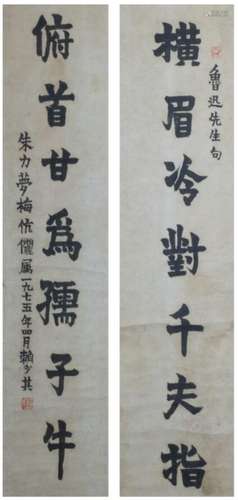 橫眉冷對千夫指
魯迅先生句
俯首甘爲孺子牛
朱力夢梅伉儷屬一九七五年四月賴少其